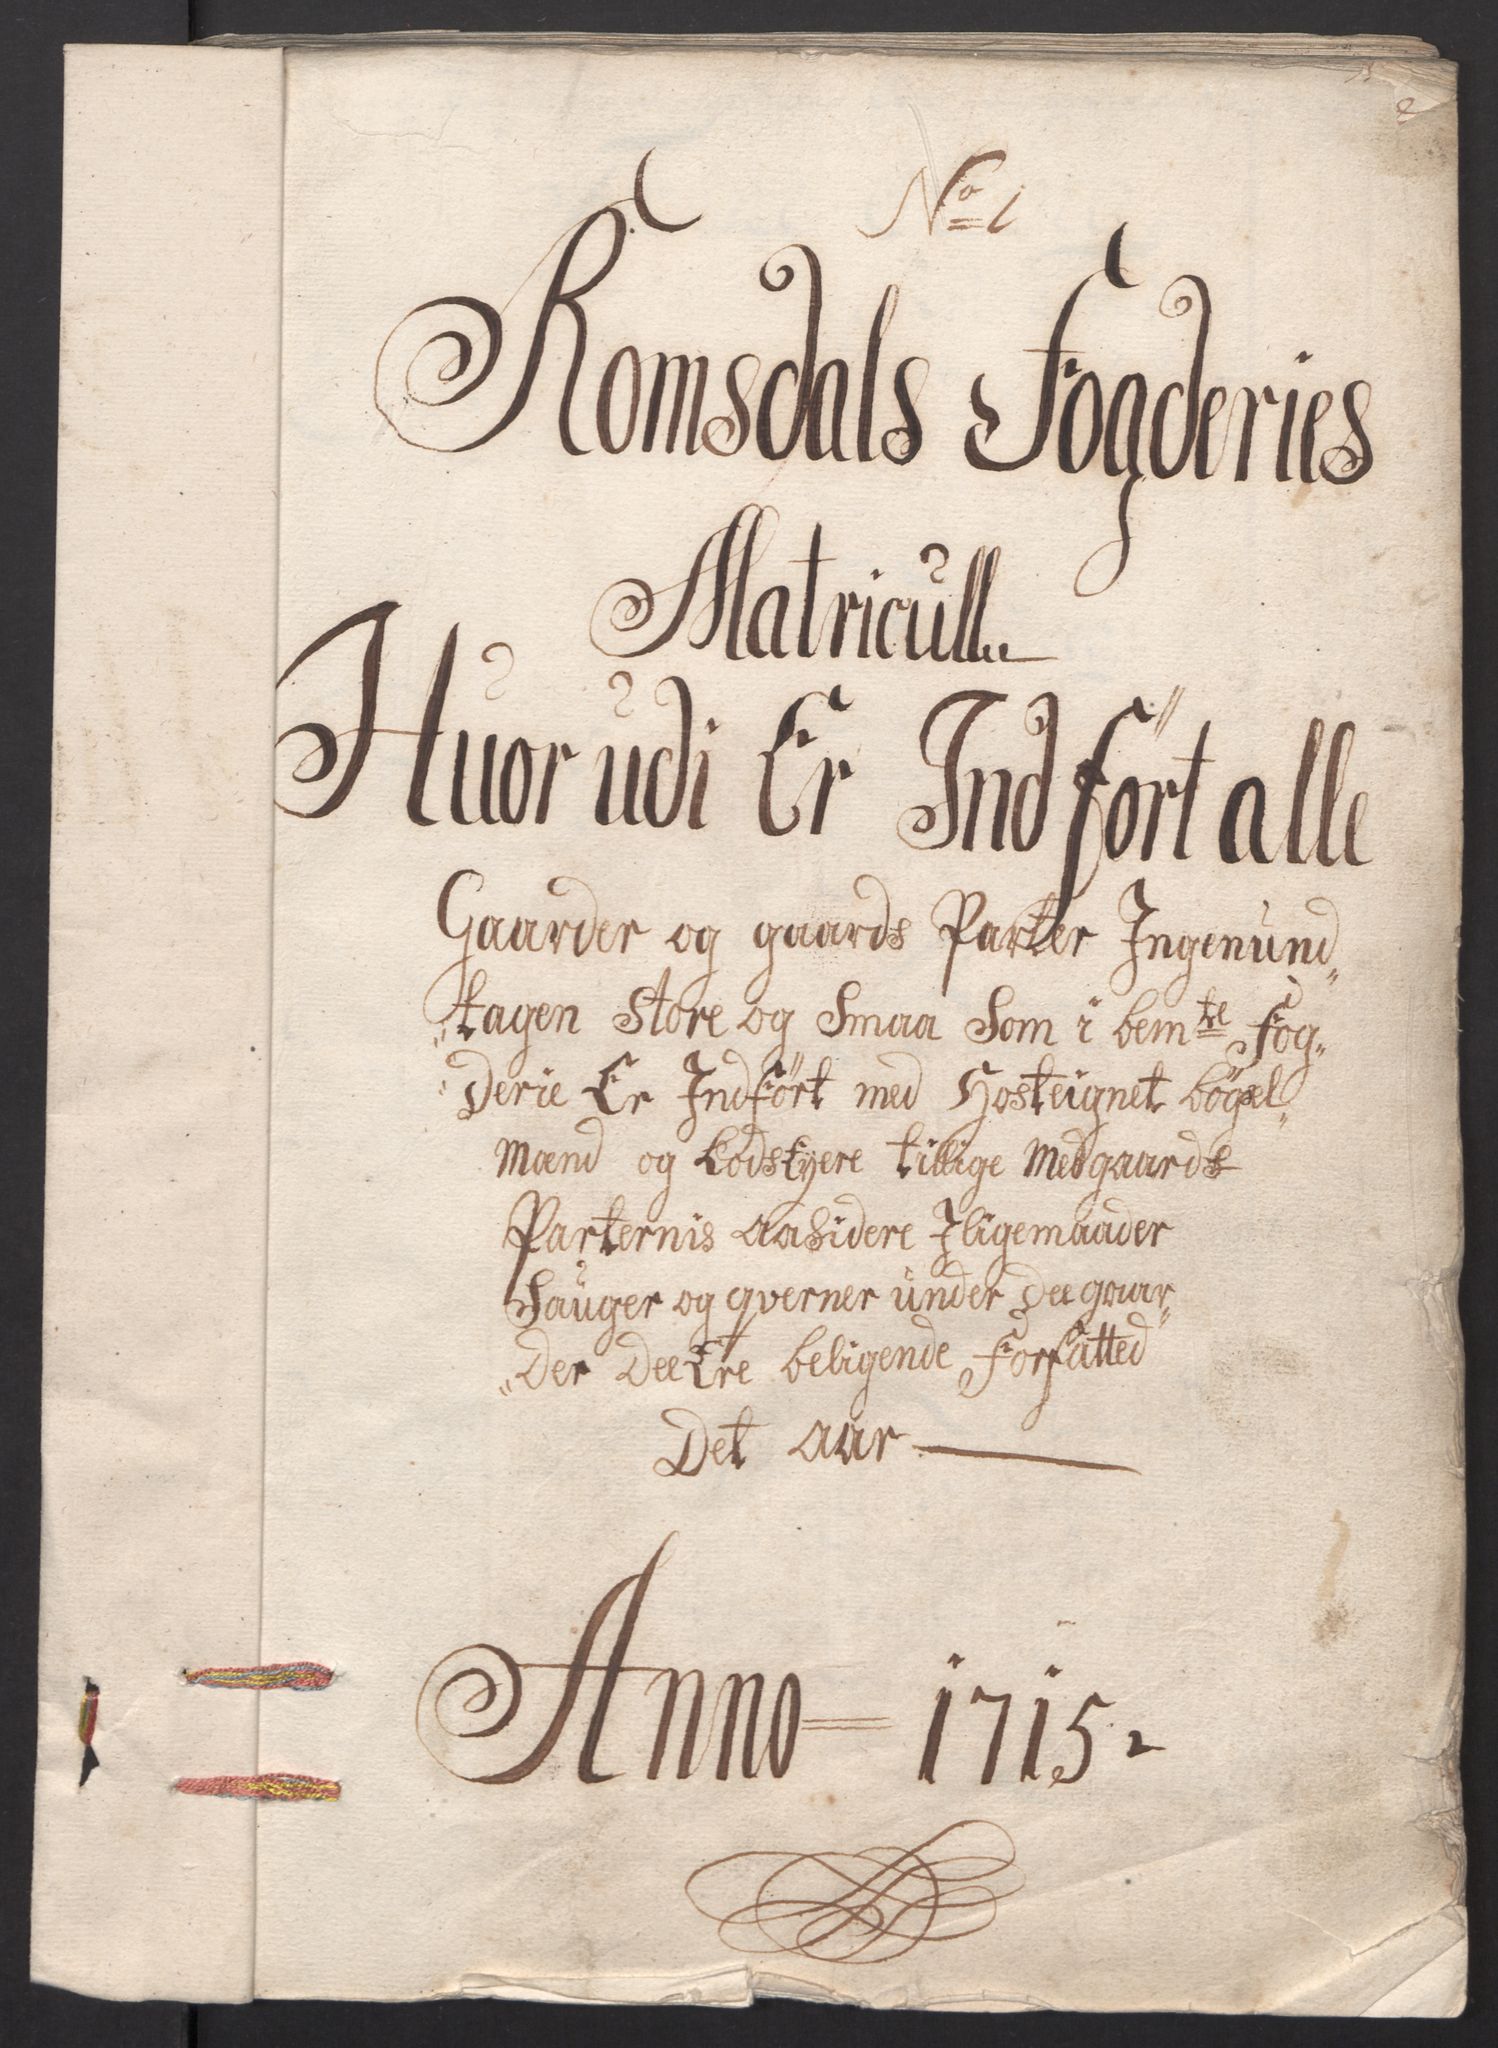 No 1
Romsdals Fogderies
Matricull
Huorudi Er Indført alle
Gaarder og gaards Parter Ingenund„
„tagen store og Smaa Som i bemte Fog„
derie Er Indført med Hosteignet bögsel„
Mænd og Lodstyere tillige Med gaards
Parternis Aasidere Jligemaader
Sauger og qverner under dee gaar„
„der dee Ere beligende Forfatted
Det Aar
Anno 1715.